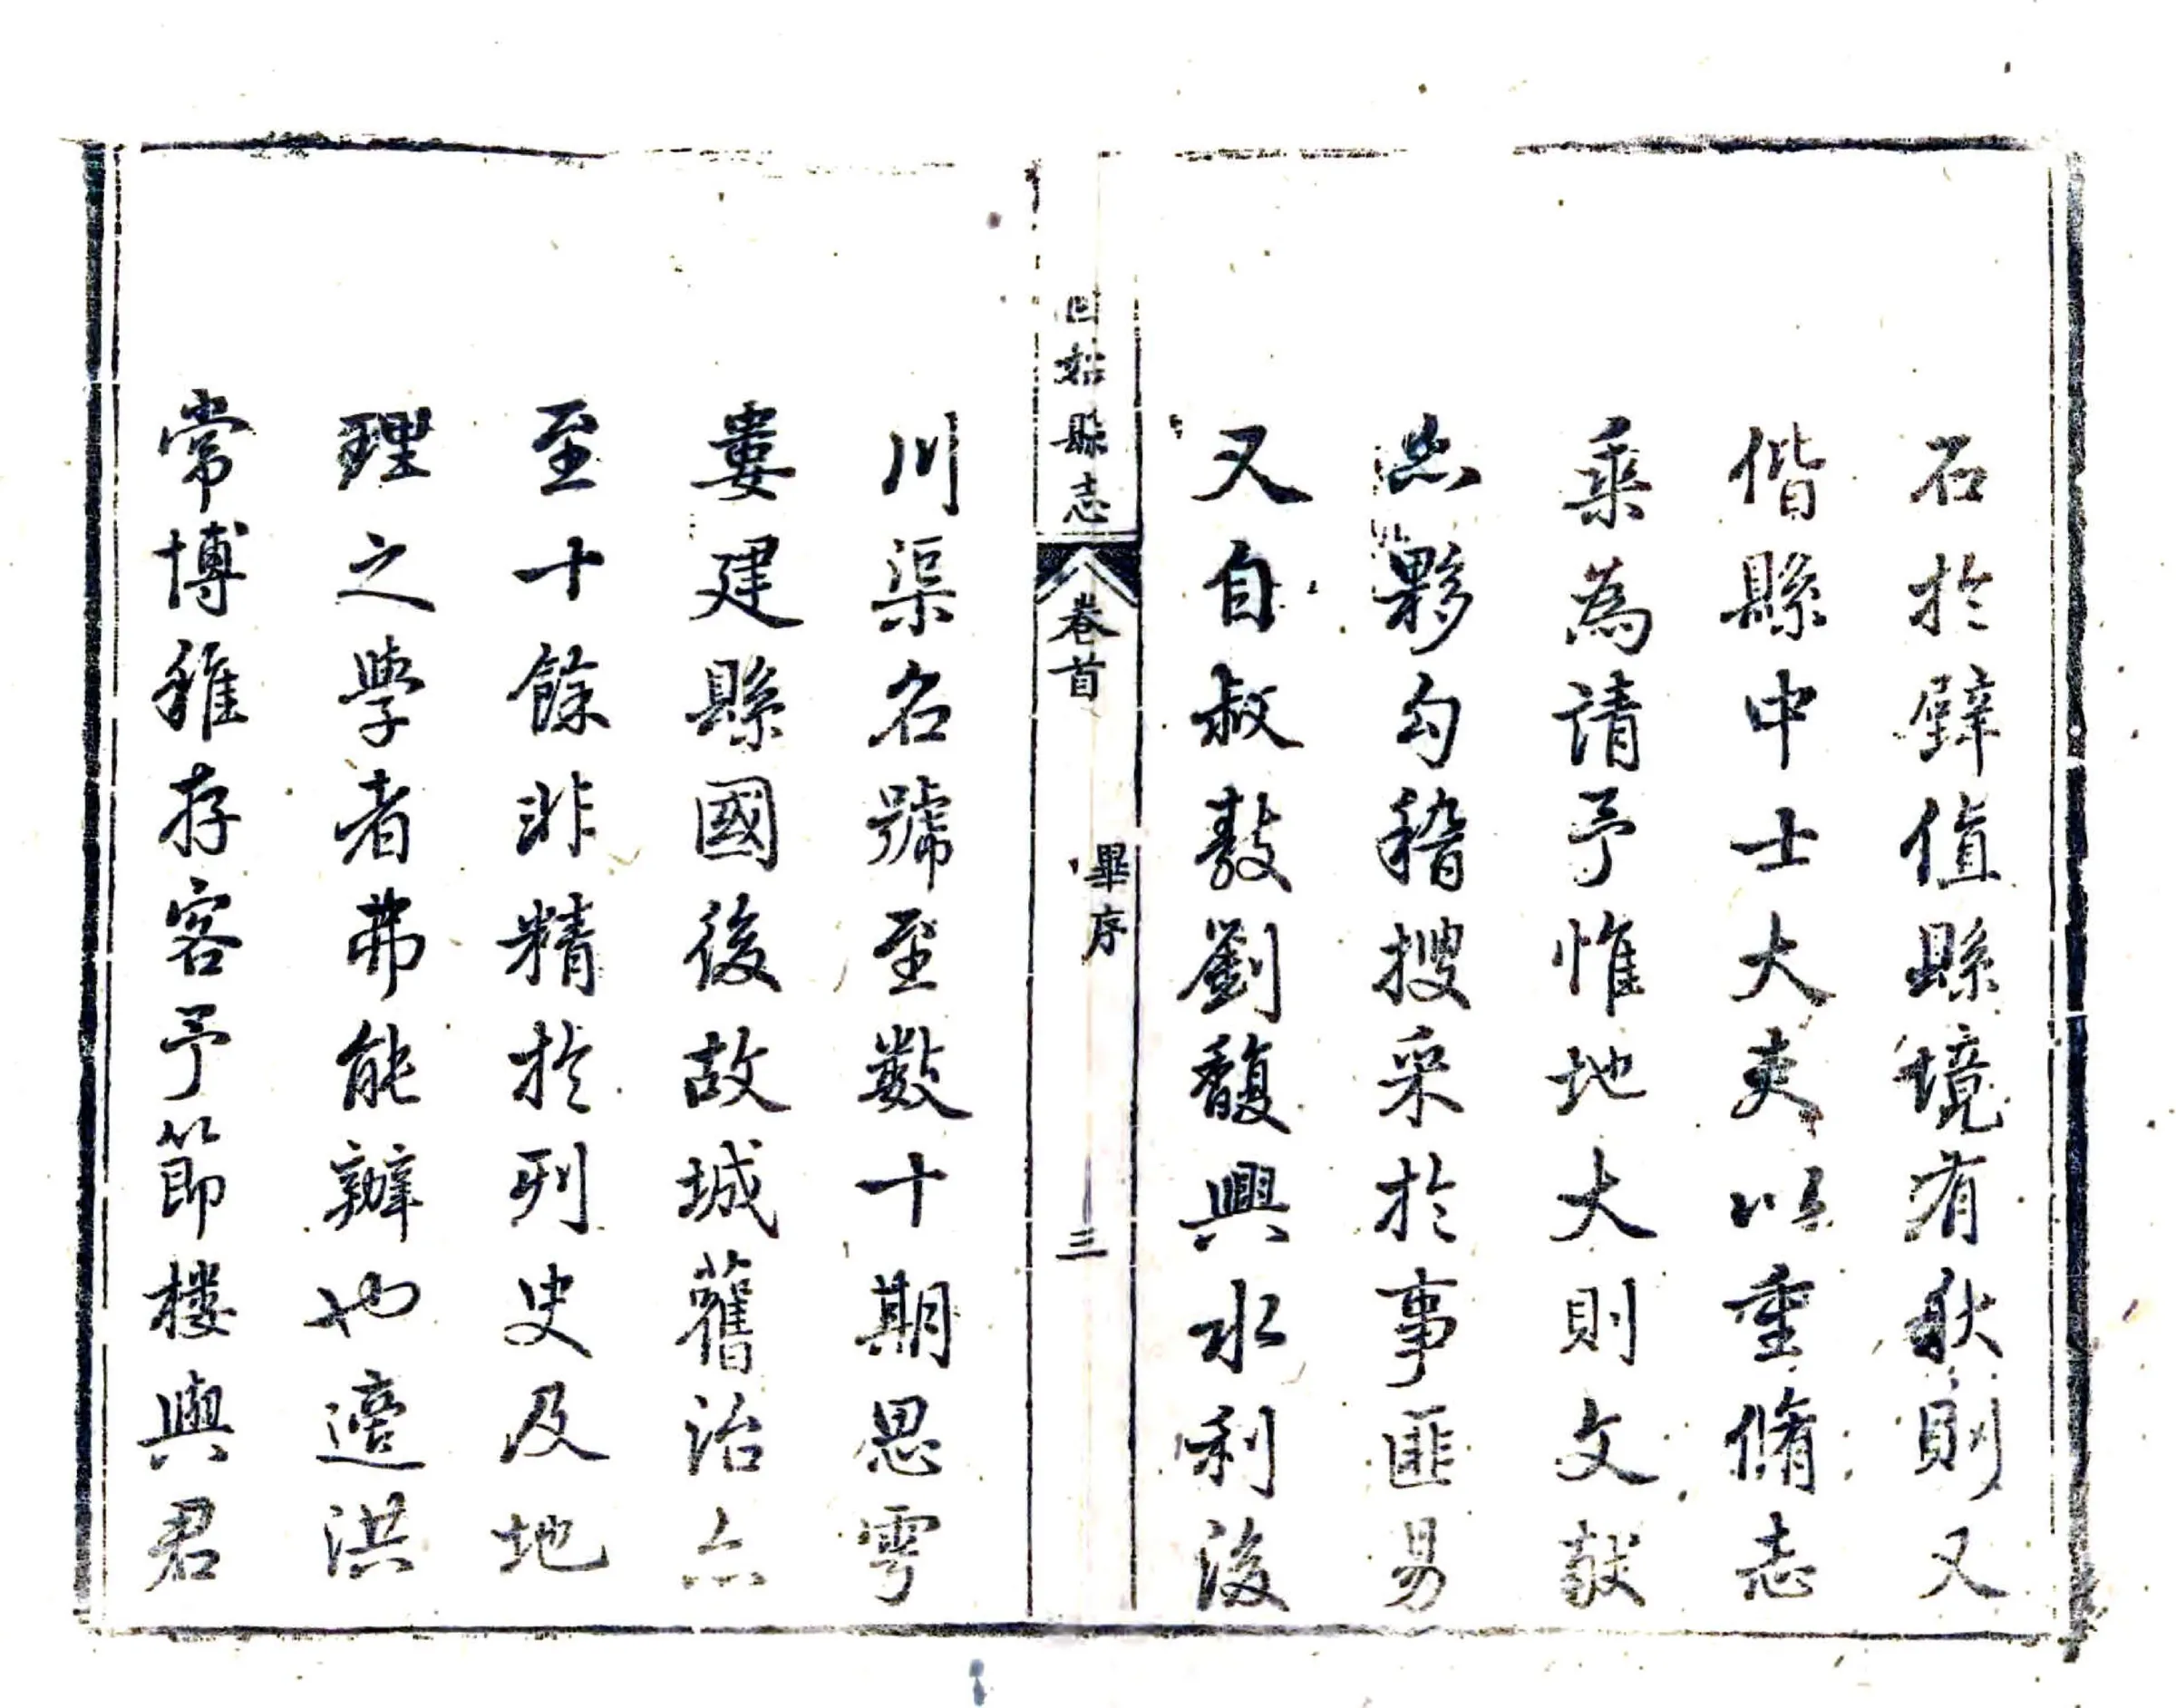 石於壁值縣境有秋則又
偕縣中士大夫以重脩志
乘為請予惟地大則文献
亦夥勾稽搜采於事匪易
又自叔敖劉馥興水利後
固始縣志
卷首
畢序
三
川渠名號至數十期思雩
婁建縣國後故城舊治亦
至十餘非精於列史及地
理之學者弗能辦也適洪
常博稚存客予節樓與君